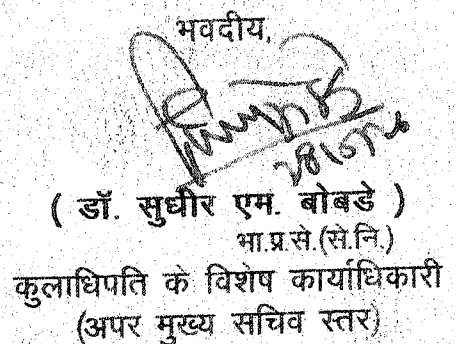 भवदीय,
( डॉ. सुधीर एम. बोबडे )
भा.प्र.से.(से.नि.)
कुलाधिपति के विशेष कार्याधिकारी
(अपर मुख्य सचिव स्तर)